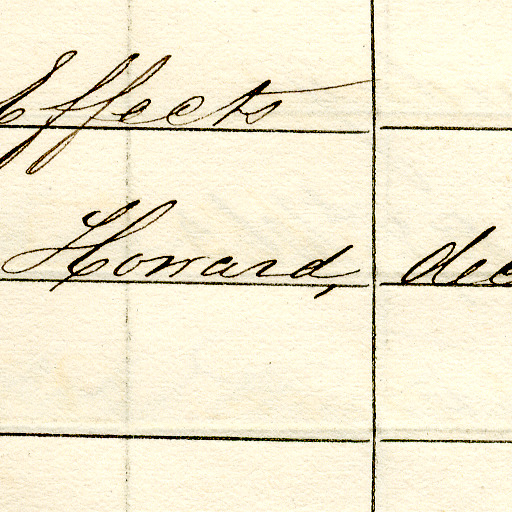 Effects
Howard, dec